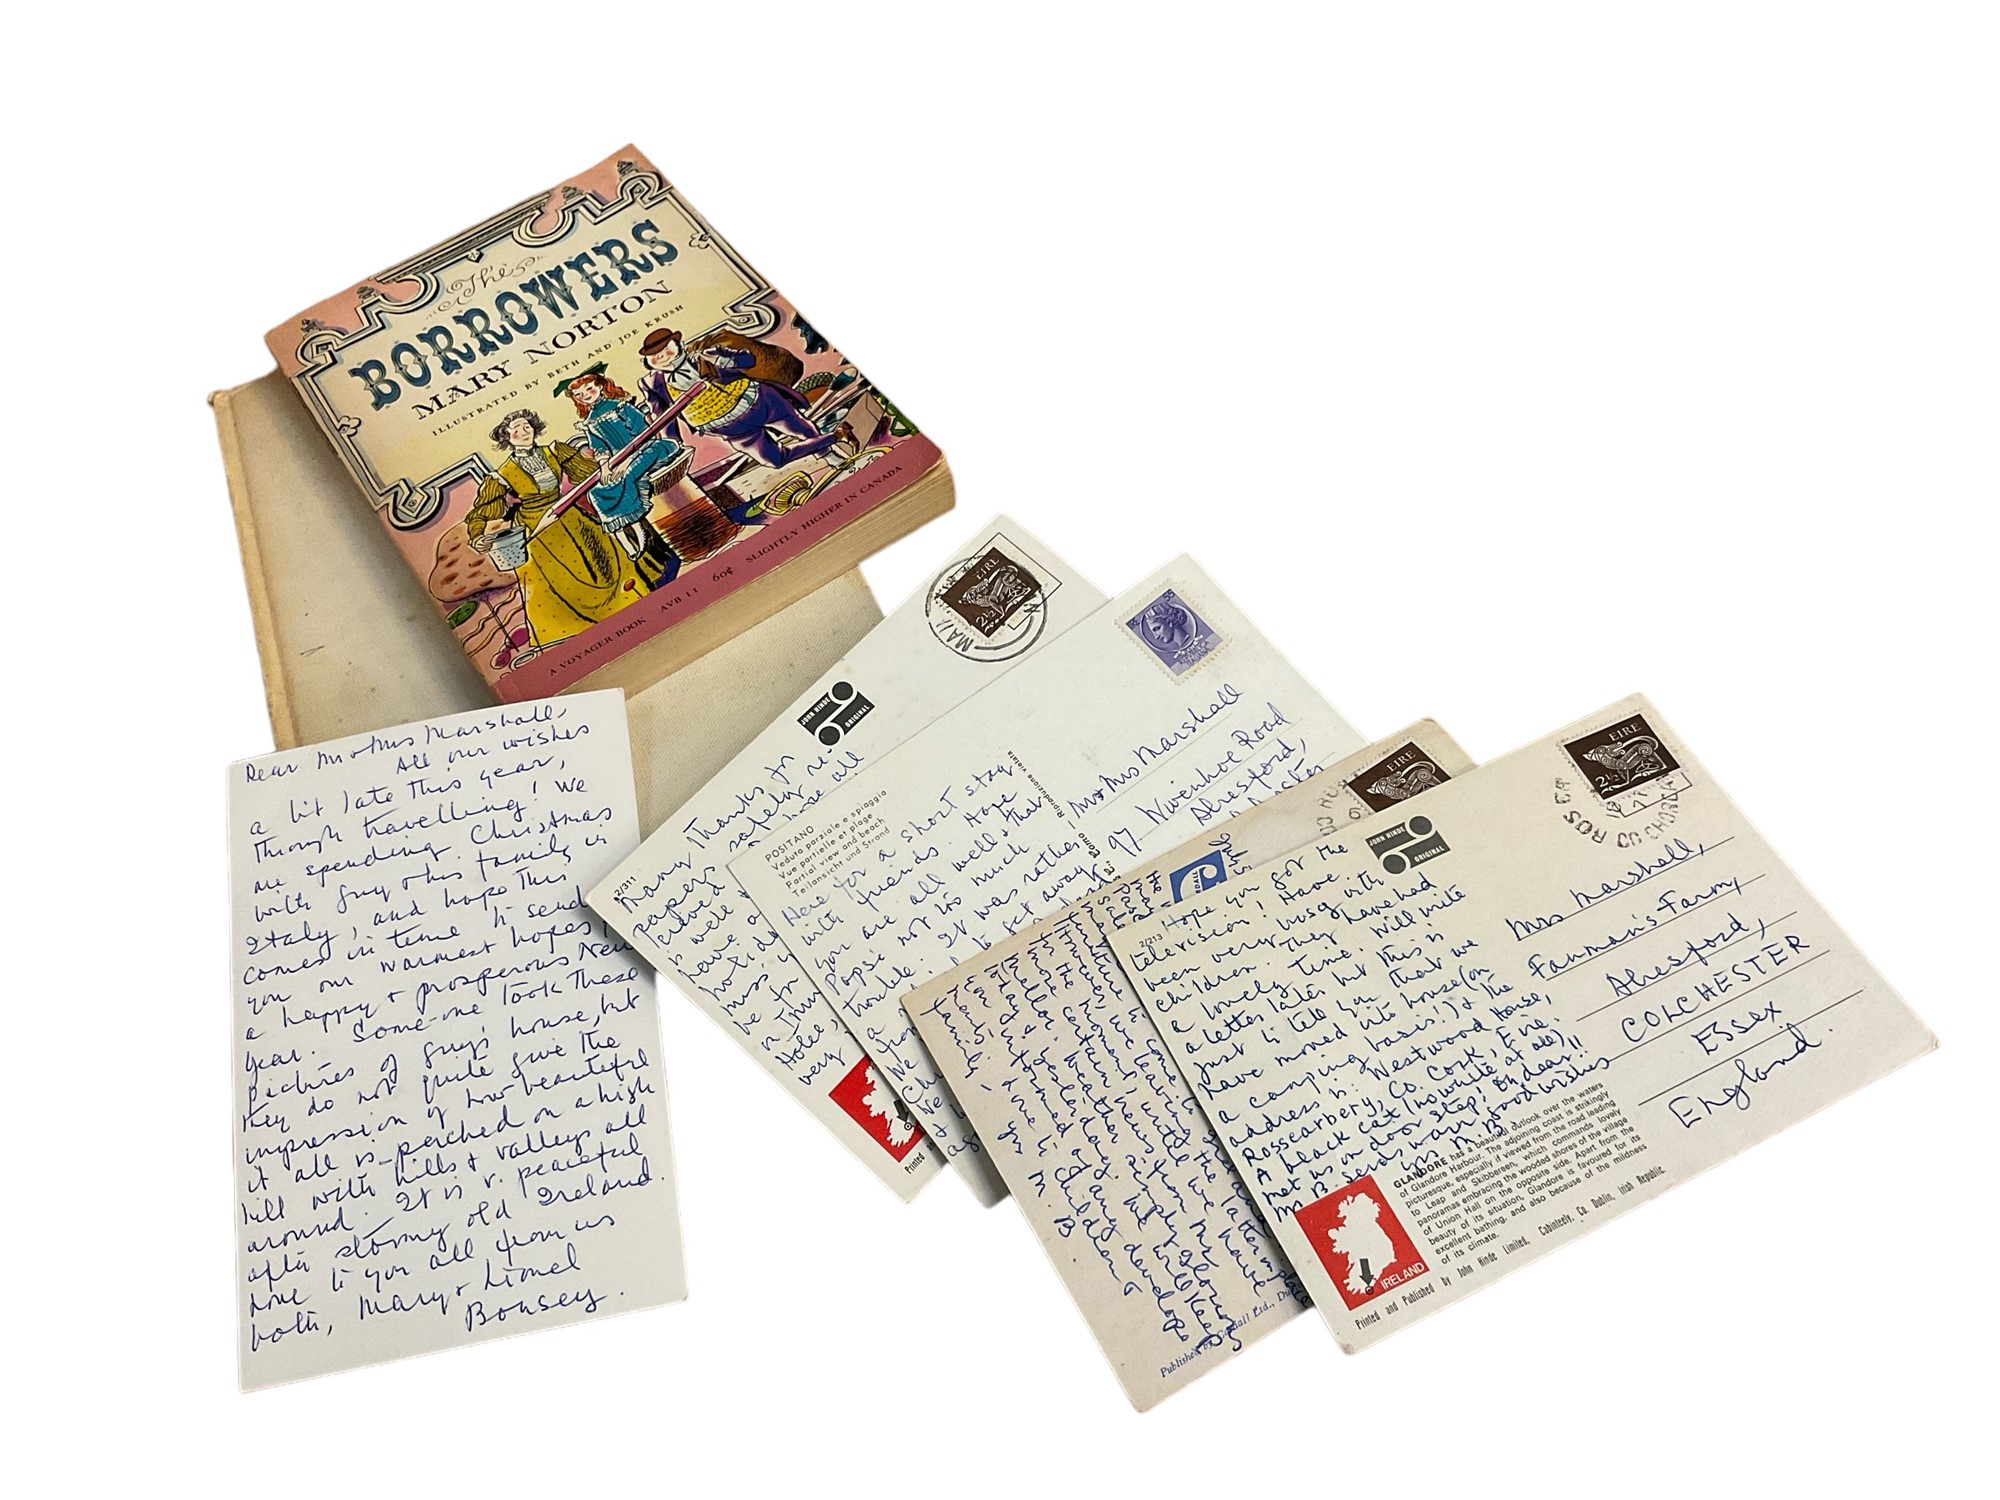 The
BORROWERS
MARY NORTON
ILLUSTRATED BY BETH AND JOE KRUSH
A VOYAGER BOOK AVB 11 60¢ SLIGHTLY HIGHER IN CANADA
Dear Mr & Mrs Marshall,
All our wishes
a bit late this year,
through travelling! We
are spending Christmas
with Guy & his family in
Italy, and hope this
comes in time to send
you our warmest hopes
a happy & prosperous New
Year. Some-one took these
pictures of Guy's house, but
they do not quite give the
impression of how beautiful
it all is – perched on a high
hill with hills & valleys all
around. It is v. peaceful
after stormy old Ireland.
Love to you all from us
both, Mary & Lionel
Bonsey.
EIRE
2½
JOHN HINDE
ORIGINAL
2/311
Many thanks for
papers safely re-
Printed an
55
POSITANO
Veduta parziale e spiaggia
Vue partielle et plage
Partial view and beach
Teilansicht und Strand
Riproduzione vietata
Here for a short stay
with friends. Hope
you are all well & that
Pops' not too much
trouble. It was rather
to get away
Mr & Mrs Marshall
97 Wivenhoe Road
Alresford,
EIRE
However, we
for the moment, until we have
more certain news from Mr.
Mellor. Weather simply glorious
today & yesterday. We will keep
you informed of any develope
ments, & love to children &
family,
yrs M. B
Published by
dall Ltd., Du
EIRE
2½
CO CHORCAI
JOHN HINDE
ORIGINAL
2/213
Hope you got the
television! Have
been very busy with
children. They have had
a lovely time. Will write
a letter later but this is
just to tell you that we
have moved into house (on
a camping basis!) & the
address is: Westwood House,
Rosscarbery, Co. Cork, Eire.
A black cat (no white at all)
met us on door step! Oh dear!!
Mr B. sends warm good wishes
yrs M. B
Mrs Marshall,
Farman's Farm,
Alresford,
COLCHESTER
ESSEX
England.
GLANDORE has a beautiful outlook over the waters
of Glandore Harbour. The adjoining coast is strikingly
picturesque, especially if viewed from the road leading
to Leap and Skibbereen, which commands lovely
panoramas embracing the wooded shores of the village
of Union Hall on the opposite side. Apart from the
beauty of its situation, Glandore is favoured for its
excellent bathing, and also because of the mildness
of its climate.
IRELAND
Printed and Published by John Hinde Limited, Cabinteely, Co. Dublin, Irish Republic.